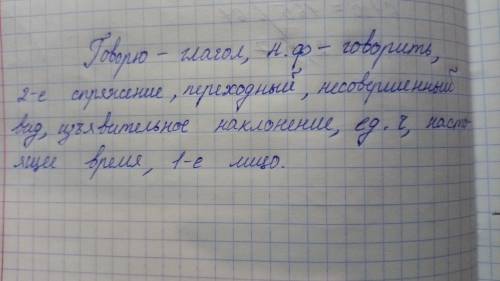 Говорю – глагол, н.ф – говорить,
2-е спряжение, переходный, несовершенный
вид, изъявительное наклонение, ед.ч, насто
ящее время, 1-е лицо.